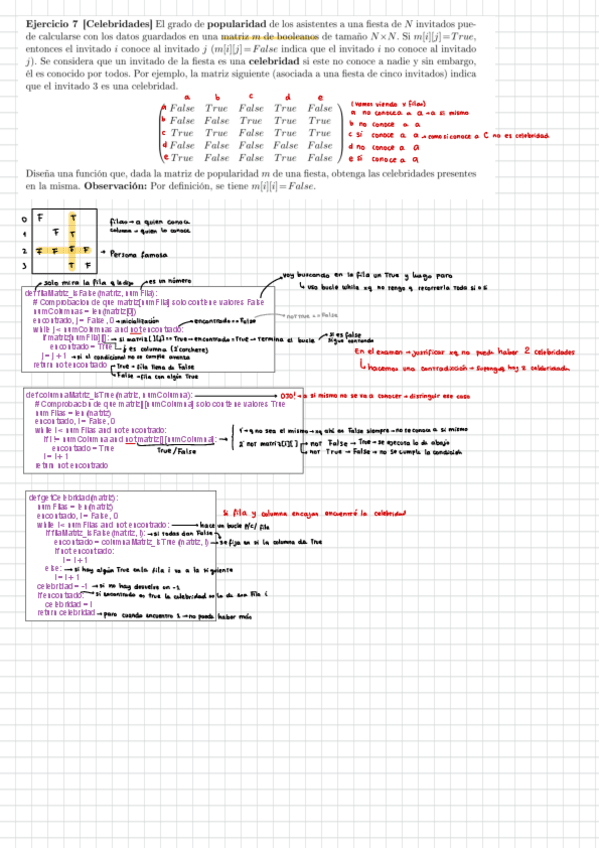 Ejercicio 7 [Celebridades] El grado de popularidad de los asistentes a una fiesta de N invitados pue-
de calcularse con los datos guardados en una matriz m de booleanos de tamaño N×N. Si m[i][j]=True,
entonces el invitado i conoce al invitado j (m[i][j]=False indica que el invitado i no conoce al invitado
j). Se considera que un invitado de la fiesta es una celebridad si este no conoce a nadie y sin embargo,
él es conocido por todos. Por ejemplo, la matriz siguiente (asociada a una fiesta de cinco invitados) indica
que el invitado 3 es una celebridad.
a b c d e
a False True False True False
b False False True True True
c True True False True True
d False False False False False
e True False False True False
(vamos viendo x filas)
a no conoce a a → a sí mismo
b no conoce a a
c sí conoce a a → como sí conoce a C no es celebridad
d no conoce a a
e sí conoce a a
Diseña una función que, dada la matriz de popularidad m de una fiesta, obtenga las celebridades presentes
en la misma. Observación: Por definición, se tiene m[i][i]=False.
0 F T
1 F T
2 F F F F → Persona famosa
3 T F
filas → a quien conoce
columna → quien lo conoce
solo mira la fila q le das
es un número
voy buscando en la fila un True y luego paro
↳ uso bucle while xq no tengo q recorrerla toda sí o sí
def filaMatriz_isFalse(matriz, numFila):
# Comprobación de que matriz[numFila] solo contiene valores False
numColumnas = len(matriz[0])
encontrado, j = False, 0 → inicialización
encontrado == False
not true == False
while j < numColumnas and not encontrado:
if matriz[numFila][j]: → si matriz[i][j] == True → encontrado = True → termina el bucle
si es false sigue contando
encontrado = True
j es columna (2º corchete)
j = j + 1 → si el condicional no se cumple avanza
return not encontrado
True → fila llena de False
False → fila con algún True
En el examen → justificar xq no puede haber 2 celebridades
↳ hacemos una contradicción → supongo hay 2 celebridades
def columnaMatriz_isTrue(matriz, numColumna):
OJO! → a sí mismo no se va a conocer → distinguir ese caso
# Comprobación de que matriz[][numColumna] solo contiene valores True
numFilas = len(matriz)
encontrado, i = False, 0
while i < numFilas and not encontrado:
if i != numColumna and not matriz[i][numColumna]:
encontrado = True
True/False
i = i + 1
return not encontrado
1º q no sea el mismo → xq ahí en False siempre → no se conoce a sí mismo
2º not matriz[i][j] → not False → True → se ejecuta lo de abajo
not True → False → no se cumple la condición
def getCelebridad(matriz):
numFilas = len(matriz)
encontrado, i = False, 0
Si fila y columna encajan encuentré la celebridad
while i < numFilas and not encontrado: → hace un bucle p/c/ fila
if filaMatriz_isFalse(matriz, i): → si todas dan False
encontrado = columnaMatriz_isTrue(matriz, i) → se fija en si la columna da True
if not encontrado:
i = i + 1
else: → si hay algún True en la fila i va a la siguiente
i = i + 1
celebridad = -1 → si no hay devuelve un -1
if encontrado: → si encontrado es true la celebridad es la de esa fila i
celebridad = i
return celebridad → paro cuando encuentro 1 → no puede haber más